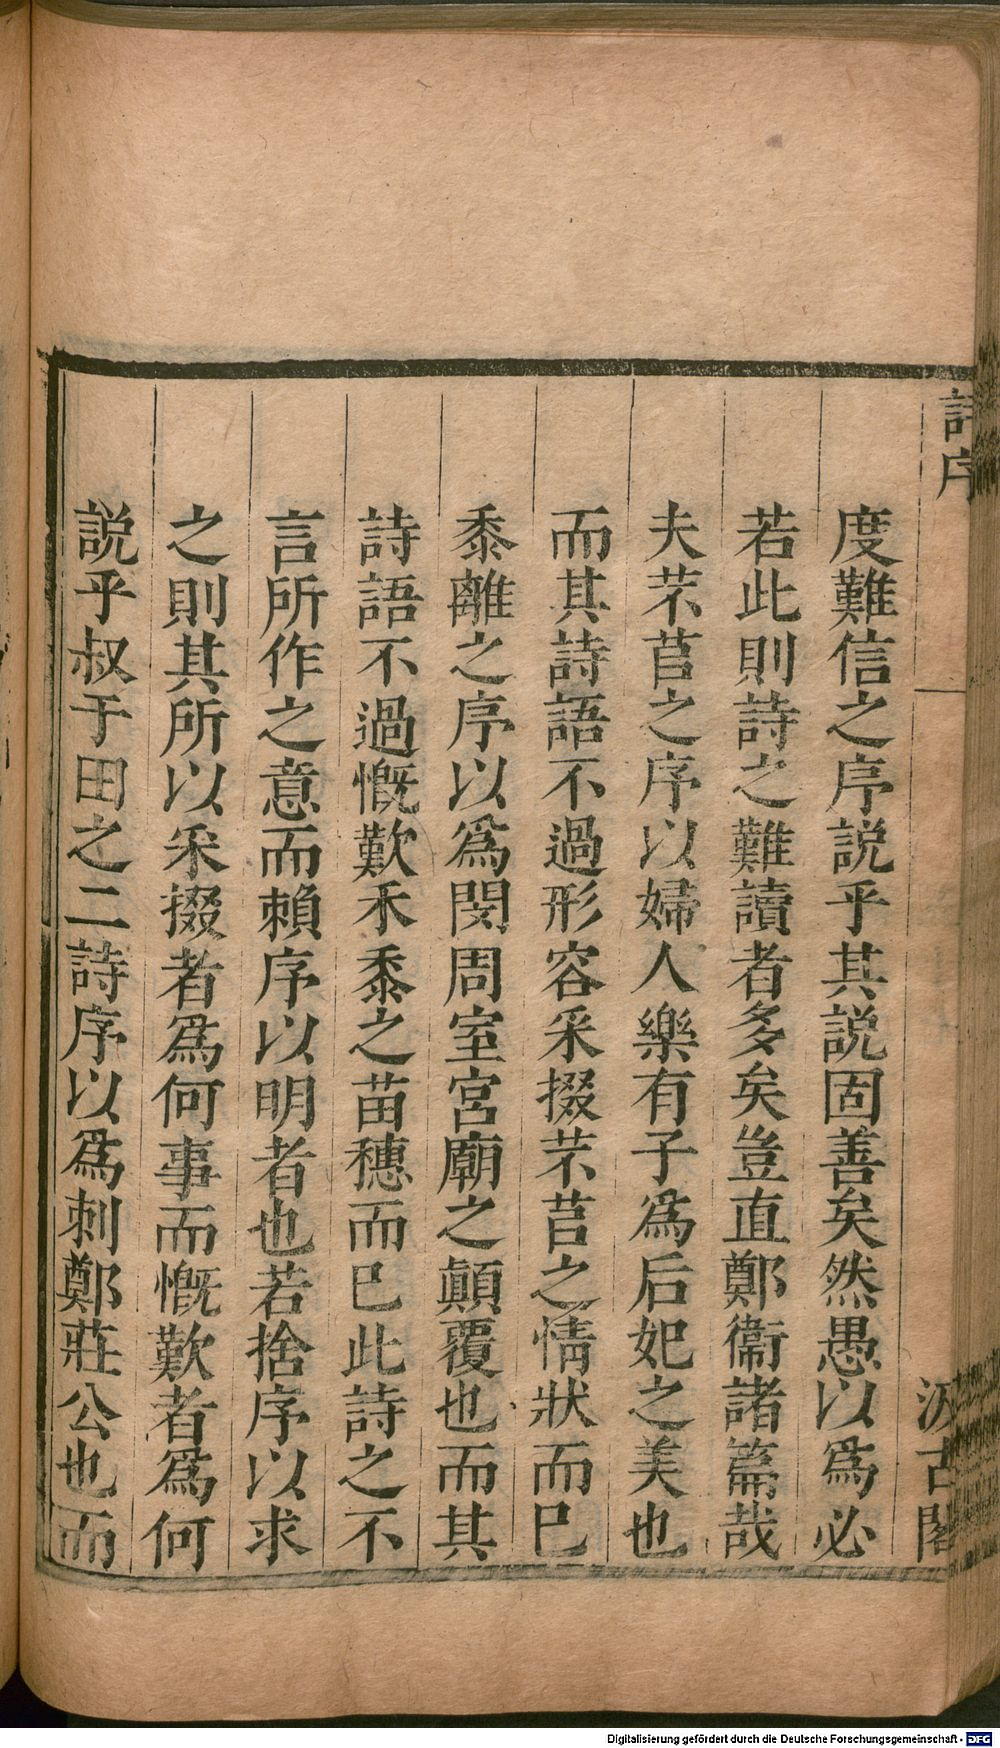 詩序
汲古閣
度難信之序説乎其説固善矣然愚以爲必
若此則詩之難讀者多矣豈直鄭衞諸篇哉
夫芣苢之序以婦人樂有子爲后妃之美也
而其詩語不過形容采掇芣苢之情狀而巳
黍離之序以爲閔周室宮廟之顚覆也而其
詩語不過慨歎禾黍之苗穗而巳此詩之不
言所作之意而賴序以明者也若捨序以求
之則其所以采掇者爲何事而慨歎者爲何
説乎叔于田之二詩序以爲刺鄭莊公也而
Digitalisierung gefördert durch die Deutsche Forschungsgemeinschaft - DFG